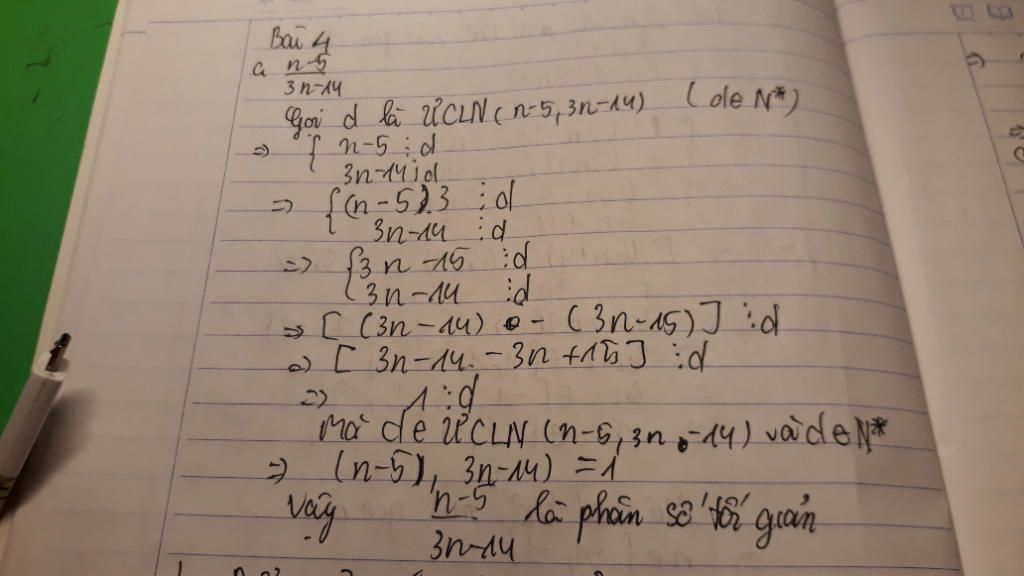 Bài 4
a n-5
3n-14
Gọi d là ƯCLN(n-5, 3n-14) (d∈N*)
=> { n-5 ⋮ d
3n-14 ⋮ d
=> { (n-5).3 ⋮ d
3n-14 ⋮ d
=> { 3n-15 ⋮ d
3n-14 ⋮ d
=> [ (3n-14) - (3n-15) ] ⋮ d
=> [ 3n-14 - 3n + 15 ] ⋮ d
=> 1 ⋮ d
mà d∈ ƯCLN (n-5, 3n-14) và d∈N*
=> (n-5), 3n-14) = 1
Vậy n-5 là phân số tối giản
3n-14